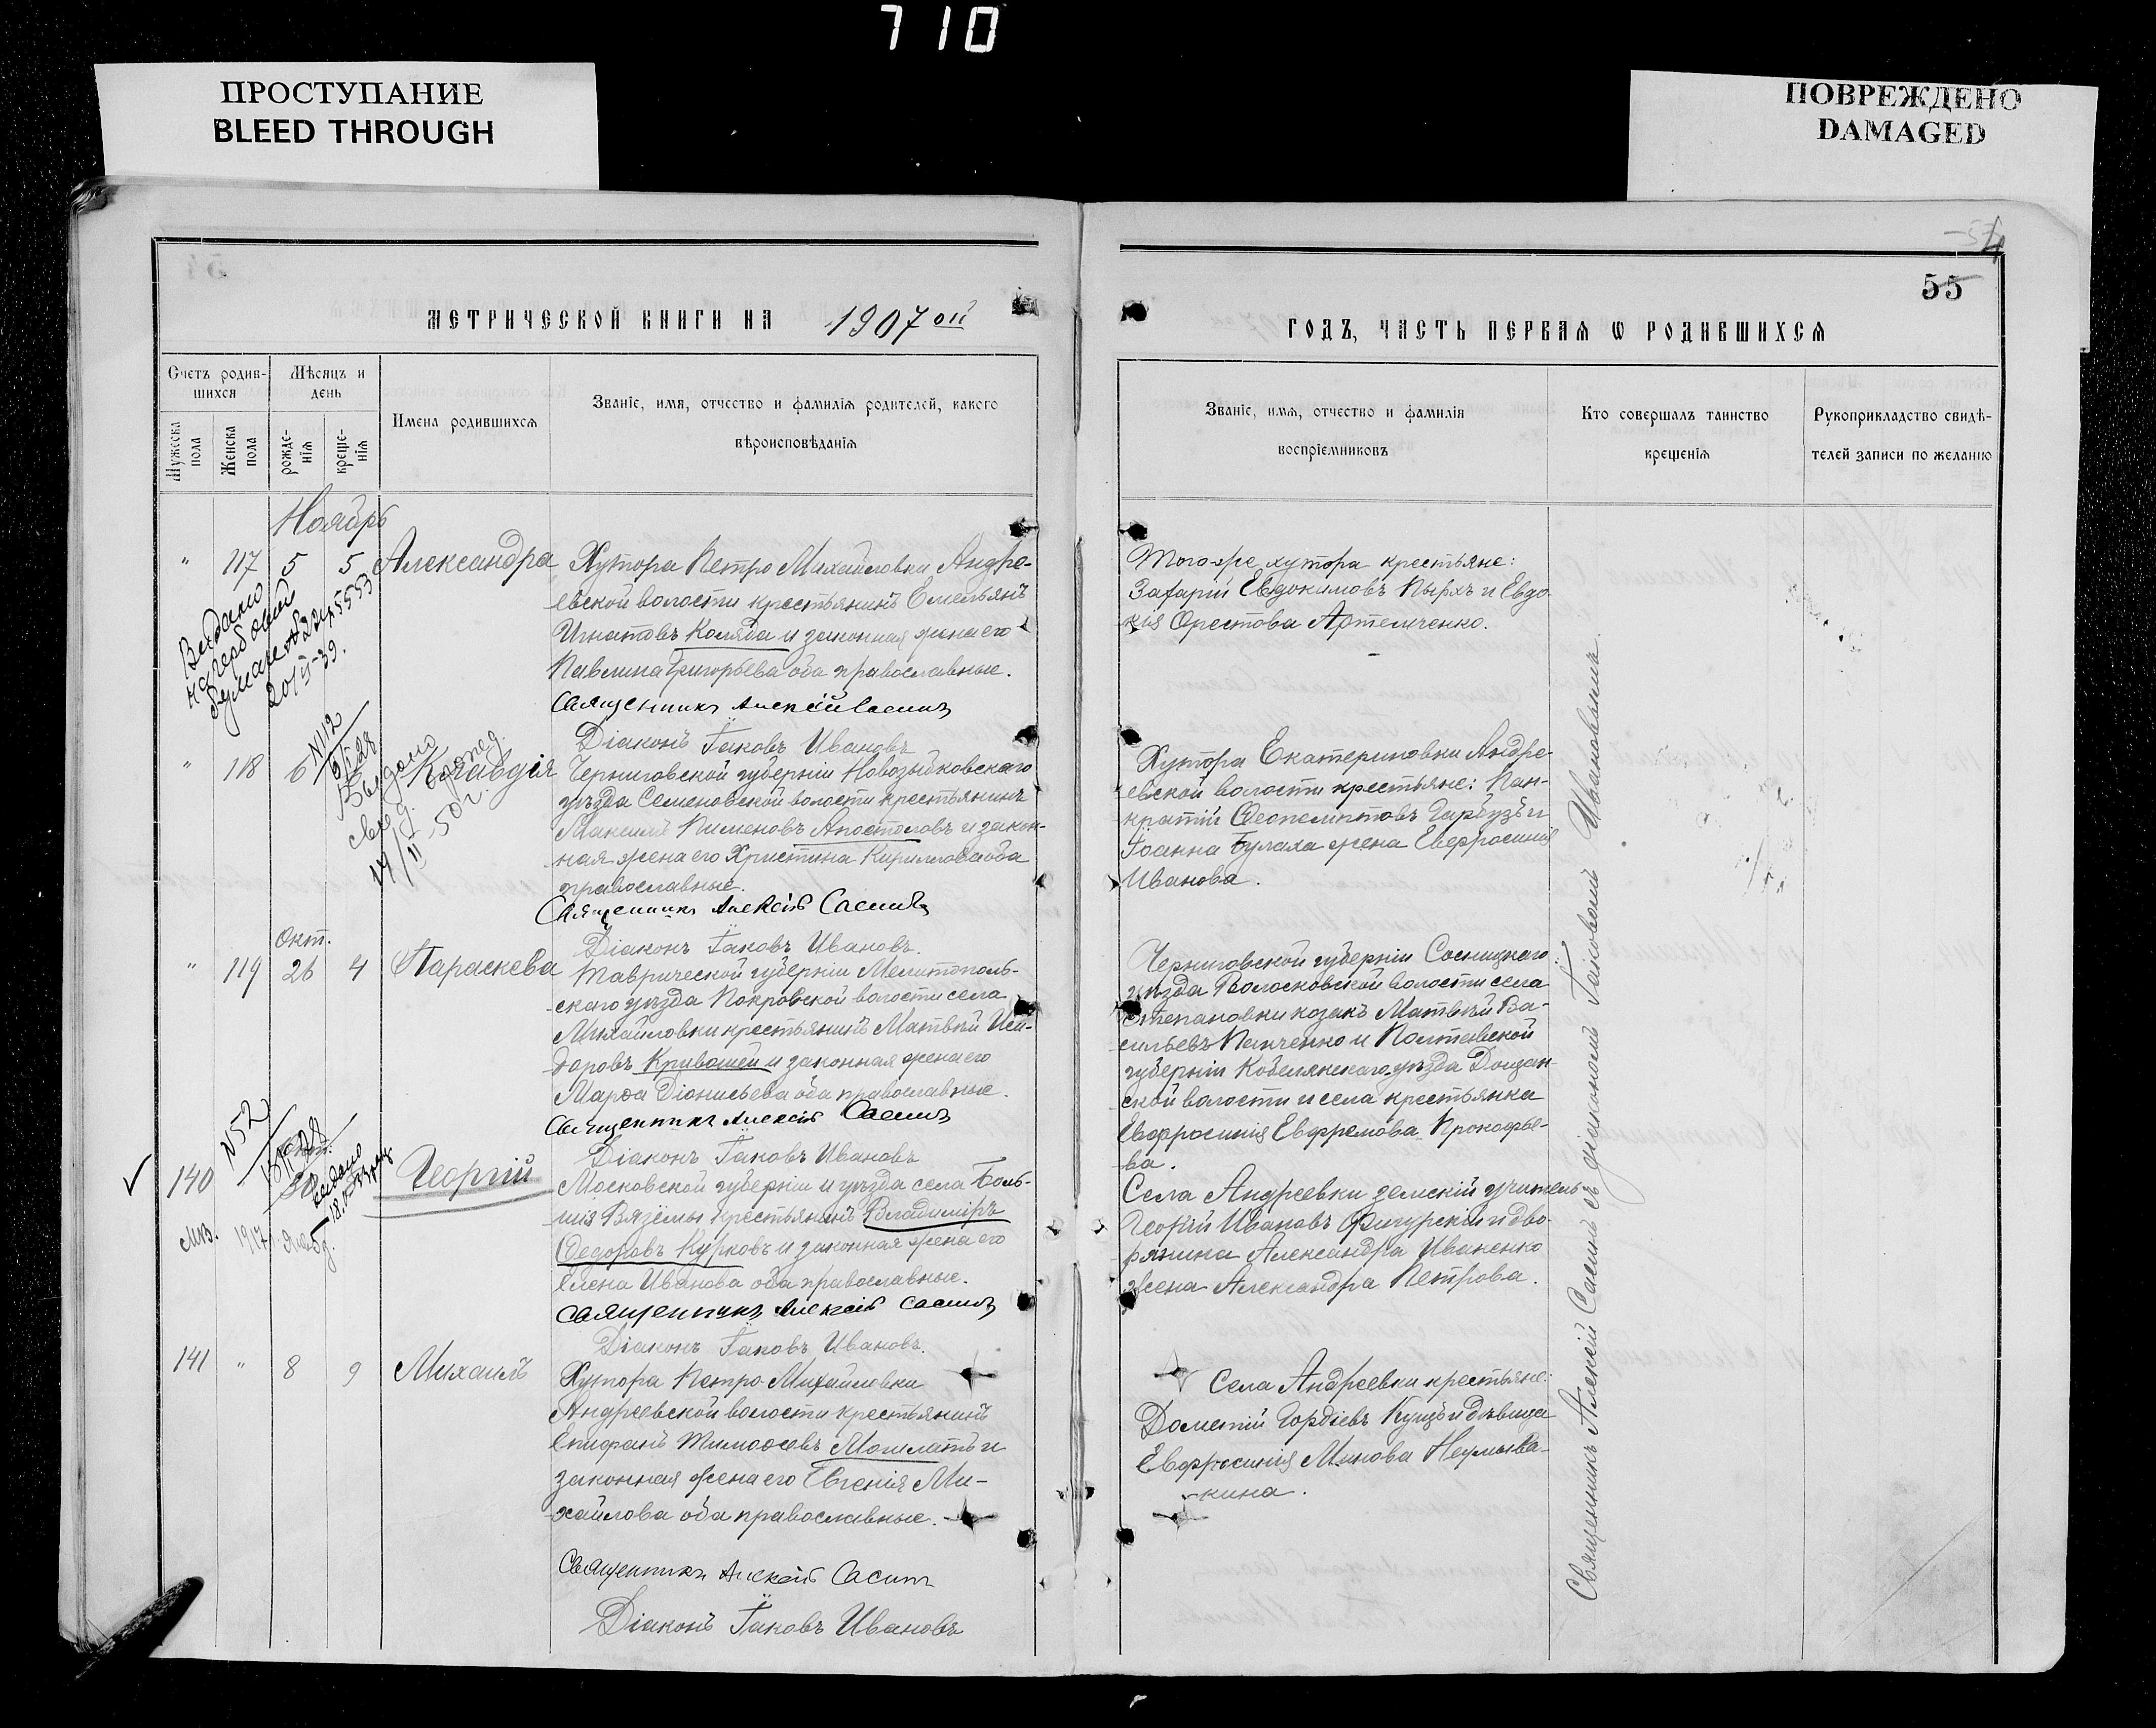 710
ПРОСТУПАНИЕ
BLEED THROUGH
ПОВРЕЖДЕНО
DAMAGED
55
МЕТРИЧЕСКОЙ КНИГИ НА 1907 ой
ГОДЪ, ЧАСТЬ ПЕРВАЯ Ѡ РОДИВШИХСЯ
Счетъ родив-
шихся
Мѣсяцъ и
день
Мужеска
пола
Женска
пола
рожде-
нія
креще-
нія
Имена родившихся
Званіе, имя, отчество и фамилія родителей, какого
вѣроисповѣданія
Званіе, имя, отчество и фамилія
воспріемниковъ
Кто совершалъ таинство
крещенія
Рукоприкладство свидѣ-
телей записи по желанію
Ноябрь
" 117 5 5 Александра
Хутора Петро Михайловки Андре-
евской волости крестьянинъ Емельянъ
Игнатовъ Коляда и законная жена его
Павлина Григорьева оба православные.
Священникъ Алексій Сасинъ
Діаконъ Іаковъ Ивановъ
Тогоже хутора крестьяне:
Захарій Евдокимовъ Пырхъ и Евдо-
кія Орестова Артемченко.
Выдано
на гербовой
бумаге
" 118 6 Клавдія
Черниговской губерніи Новозыбковскаго
уѣзда Семеновской волости крестьянинъ
Максимъ Пименовъ Апостоловъ и закон-
ная жена его Христина Кириллова оба
православные.
Священникъ Алексій Сасинъ
Діаконъ Іаковъ Ивановъ.
Хутора Екатериновки Андре-
евской волости крестьяне: Пан-
кратій Ѳеопемптовъ Гарбузъ и
Іоанна Булаха жена Евфросинія
Иванова.
N 112
Выдано
свид.
Окт.
" 119 26 4 Параскева
Таврической губерніи Мелитополь-
скаго уѣзда Покровской волости села
Михайловки крестьянинъ Матвѣй Иси-
доровъ Кривошей и законная жена его
Марѳа Діонисьева оба православные.
Священникъ Алексій Сасинъ
Діаконъ Іаковъ Ивановъ
Черниговской губерніи Сосницкаго
уѣзда Волосковской волости села
Степановки козакъ Матвѣй Ва-
сильевъ Панченко и Полтавской
губерніи Кобелякскаго уѣзда
ской волости и села крестьянка
Евфросинія Евфремова Прокофье-
ва.
N 52
140 Георгій
Московской губерніи и уѣзда села Боль-
шія Вязёмы крестьянинъ Владиміръ
Ѳедоровъ Курковъ и законная жена его
Елена Иванова оба православные.
Священникъ Алексій Сасинъ
Діаконъ Іаковъ Ивановъ.
Села Андреевки земскій учитель
Георгій Ивановъ Фигурскій и дво-
рянина Александра Иваненко
жена Александра Петрова.
141 " 8 9 Михаилъ
Хутора Петро Михайловки
Андреевской волости крестьянинъ
Епифанъ Тимоѳеевъ и
законная жена его Евгенія Ми-
хайлова оба православные.
Священникъ Алексій Сасинъ
Діаконъ Іаковъ Ивановъ
Села Андреевки крестьяне:
Дометій Гордіевъ Куцъ и дѣвица
Евфросинія Минова Неумыва-
кина.
Священникъ Алексій Сасинъ съ діакономъ Іаковомъ Ивановымъ.